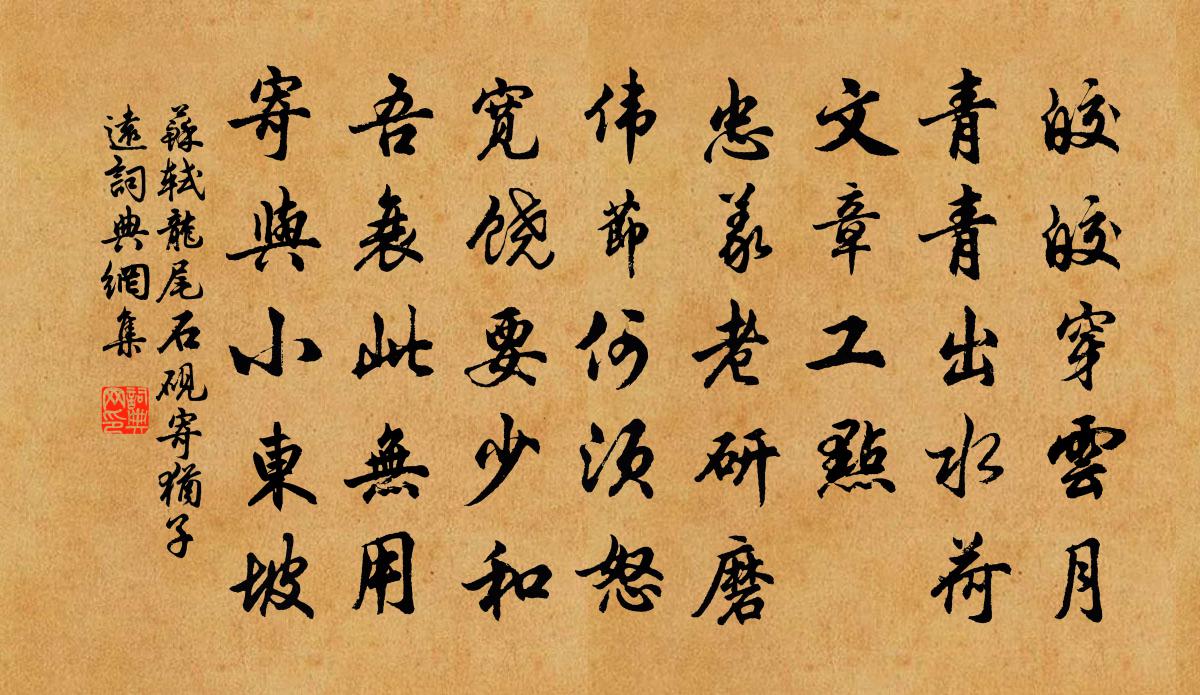 皎皎穿雲月
青青出水荷
文章工點
忠義老研磨
伟節何須怒
寬饶要少和
吾衰此無用
寄與小東坡
蘇轼龍尾石硯寄猶子
遠詞典網集
詞典
网印